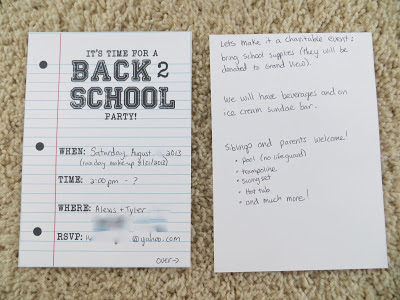 IT'S TIME FOR A
BACK 2
SCHOOL
PARTY!
WHEN: Saturday, August 2013
(rainday make-up 2013)
TIME: 2:00pm - ?
WHERE: Alexis + Tyler
RSVP: @yahoo.com
over →
Lets make it a charitable event:
bring school supplies (they will be
donated to Grand View).
We will have beverages and an
ice cream sundae bar.
Siblings and parents welcome!
• Pool (no lifeguard)
• trampoline
• swingset
• Hot tub
• and much more!